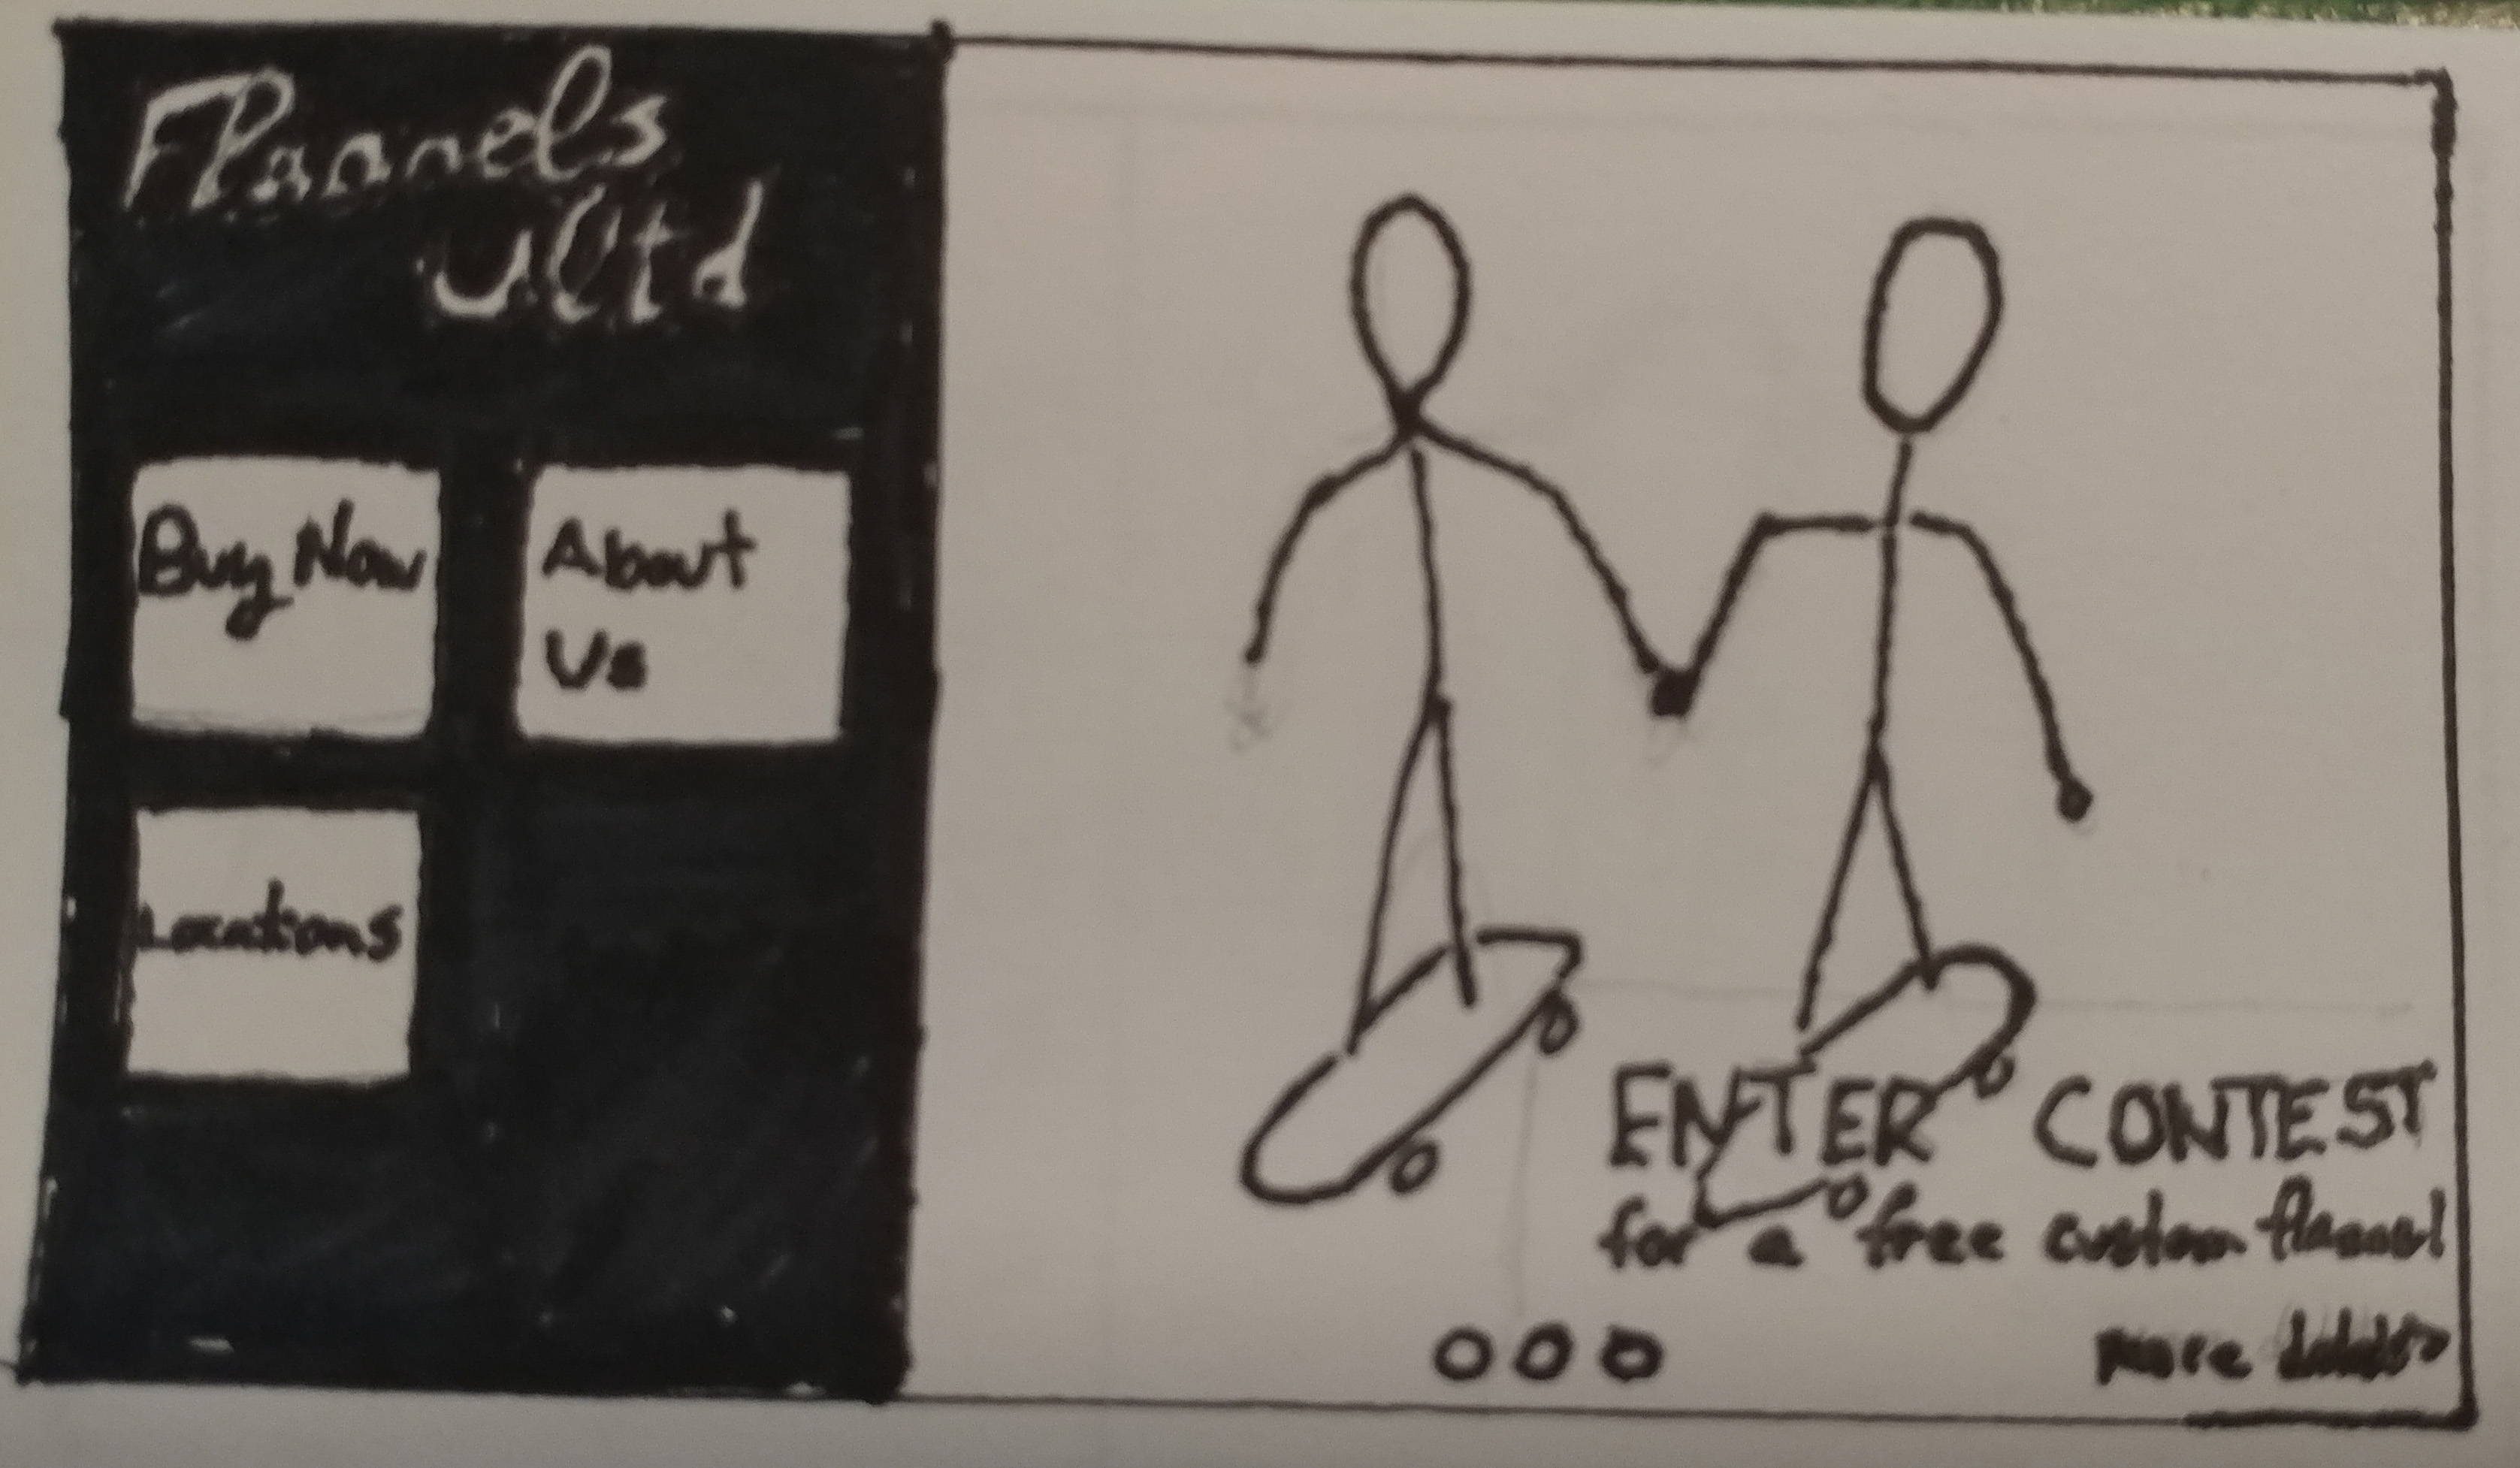 Flannels
Ultd
Buy Now
About
Us
Locations
ENTER CONTEST
for a free custom flannel
more details>